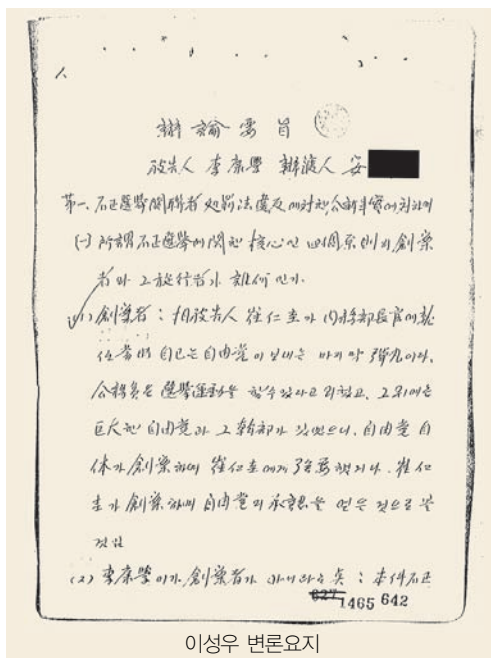 辯論要旨
被告人 李康學 辯護人 安
第一. 不正選擧關聯者 処罰法違反에 対한 公訴事實에 対하여
(一) 所謂 不正選擧에 関한 核心인 四個原則의 創案
者와 그 施行者가 誰何인가.
(1) 創案者 : 相被告人 崔仁圭가 內務部長官에 就
任當時 自己는 自由党이 보내는 마지막 彈丸이다.
公務員은 選擧運動을 할수있다고 외쳤고, 그 뒤에는
巨大한 自由党과 그 幹部가 있었으니, 自由党 自
体가 創案하여 崔仁圭에게 强要했거나. 崔仁
圭가 創案하여 自由党의 承認을 얻은 것으로 볼
것임
(2) 李康學이가 創案者가 아니라는 点 : 本件 不正
627 1465 642
이성우 변론요지